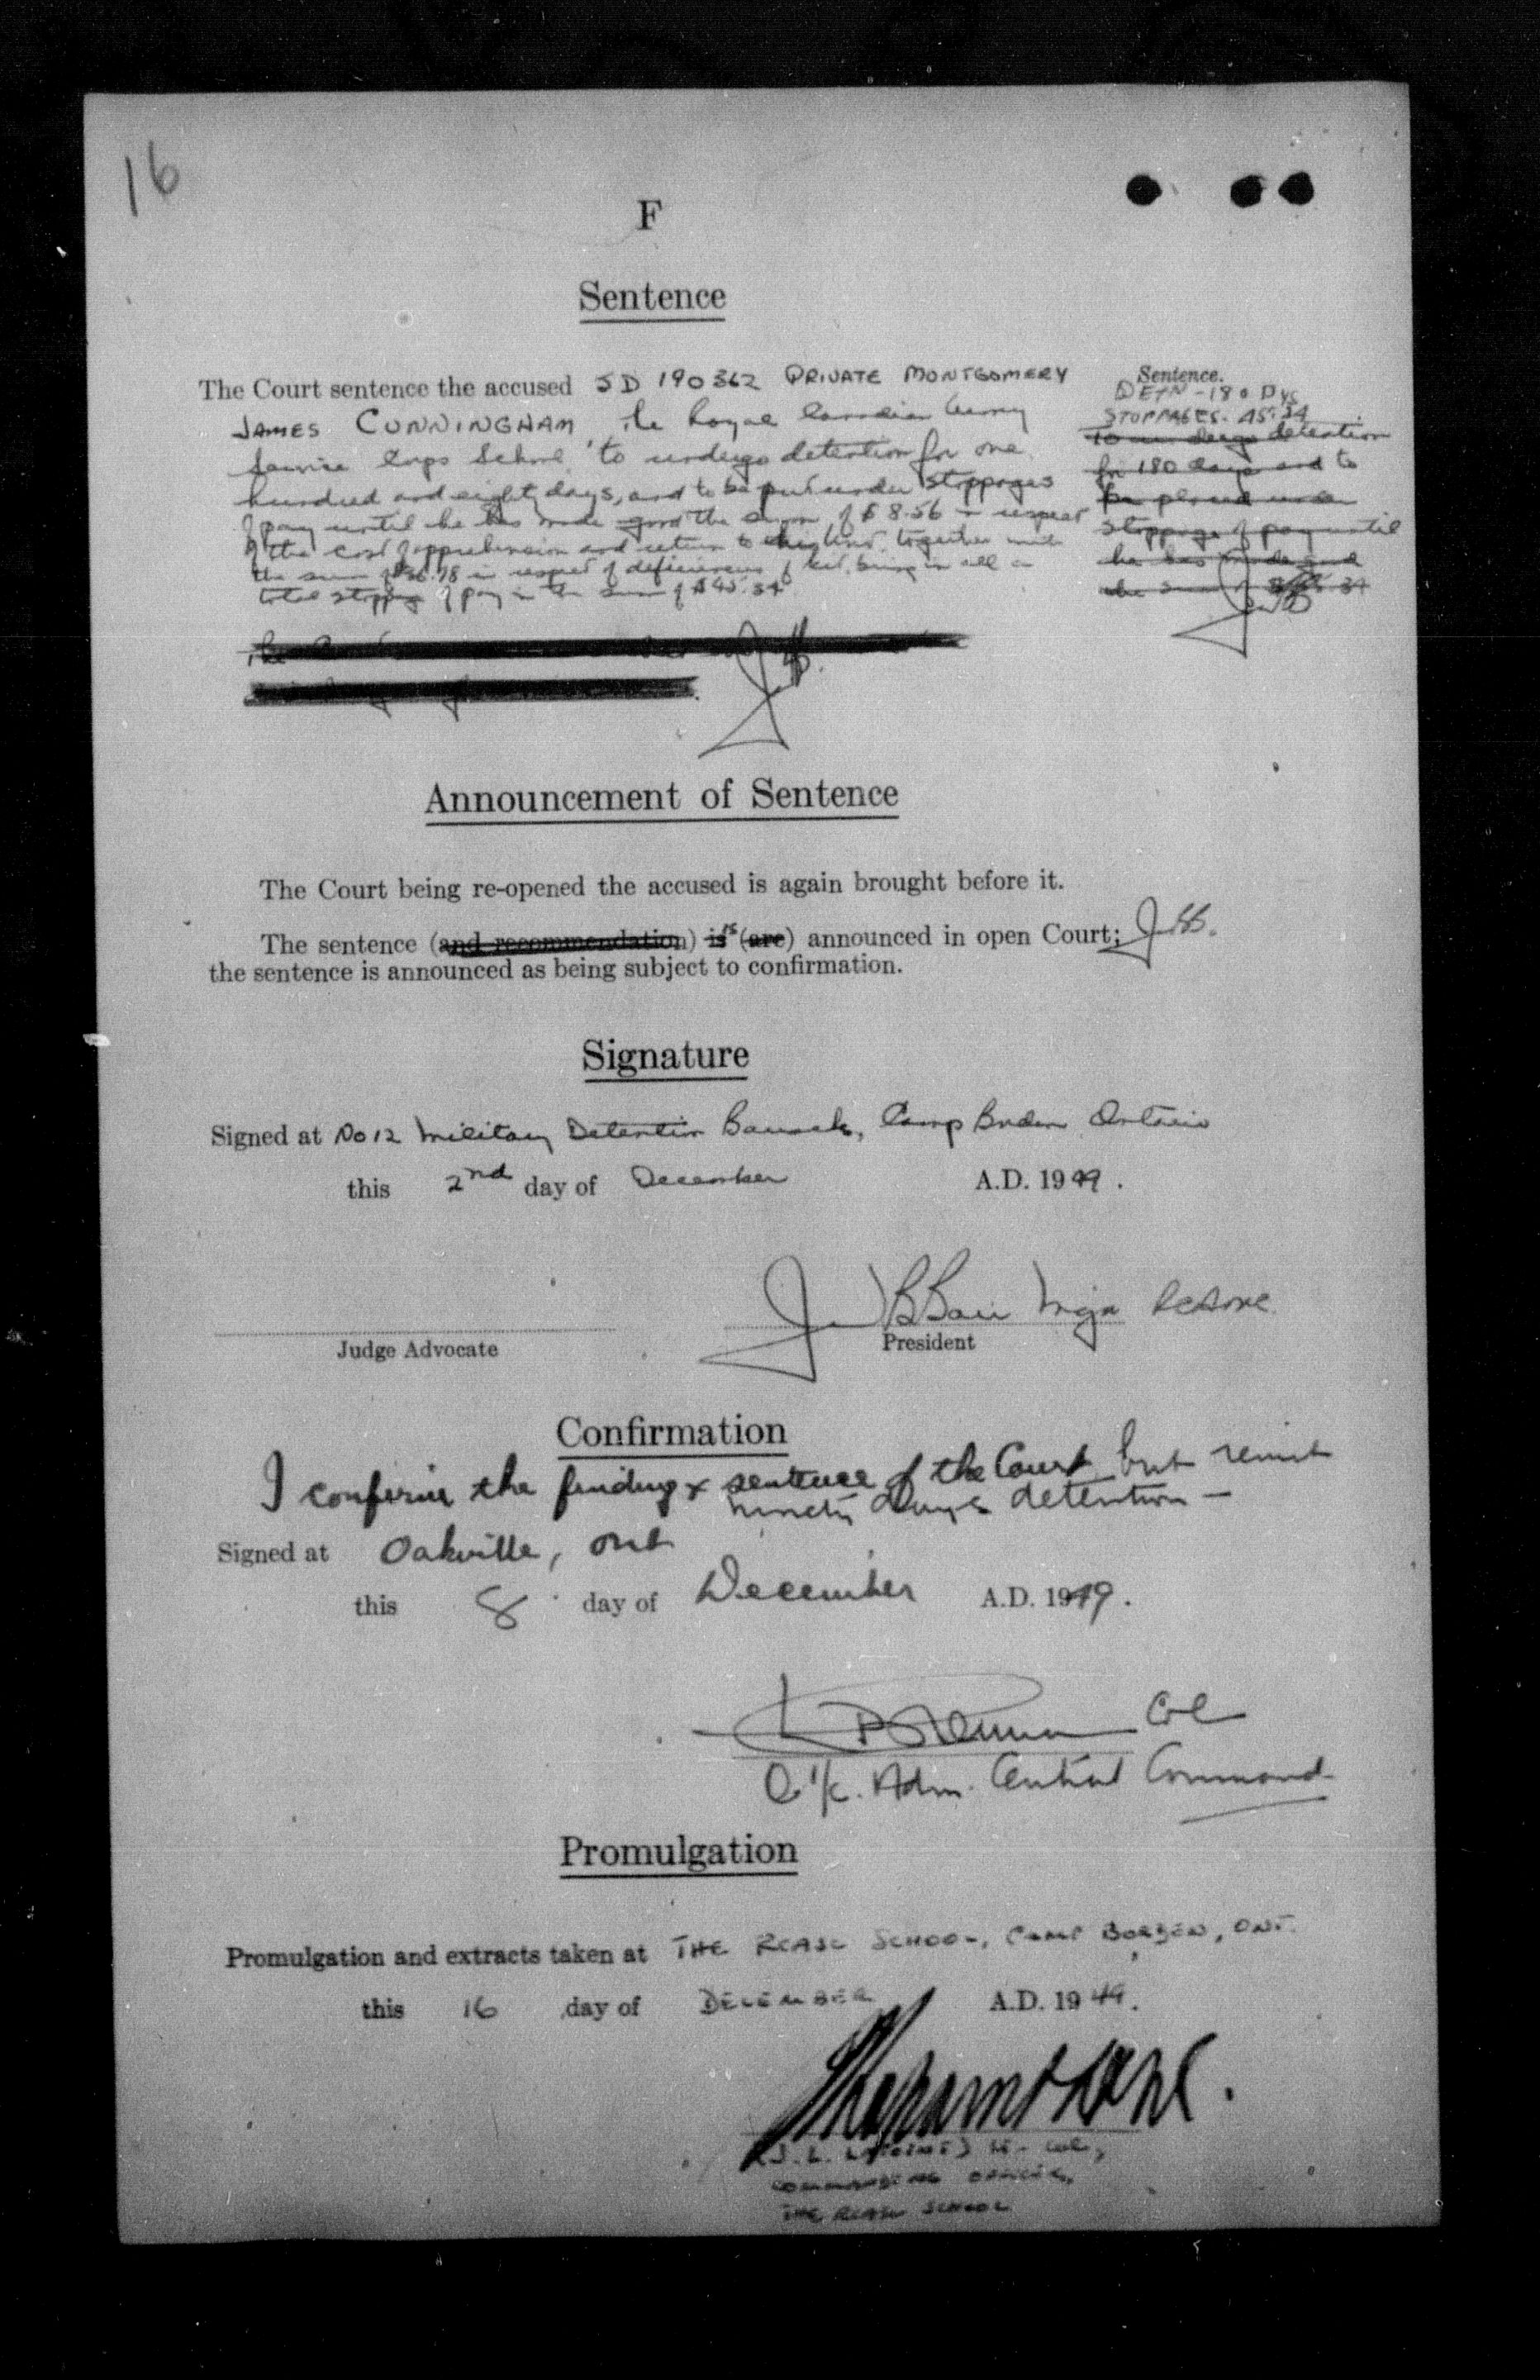 16
F
Sentence
The Court sentence the accused SD 190362 PRIVATE MONTGOMERY
JAMES CUNNINGHAM, The Royal Canadian Army
Service Corps School, to undergo detention for one
hundred and eighty days, and to be put under stoppages
of pay until he has made good the sum of $8.56 in respect
of the cost of apprehension and return to his Unit, together with
the sum of $36.78 in respect of deficiencies of kit, being in all a
total stoppage of pay in the sum of $45.34
Sentence.
DETN - 180 Dys
STOPPAGES. 45.34
To undergo detention
for 180 days and to
be placed under
stoppage of pay until
he has made good
the sum of $45.34
JBB
The
JBB.
Announcement of Sentence
The Court being re-opened the accused is again brought before it.
The sentence (and recommendation) is is (are) announced in open Court; JBB.
the sentence is announced as being subject to confirmation.
Signature
Signed at No 12 Military Detention Barracks, Camp Borden Ontario
this 2nd day of December A.D. 1949.
Judge Advocate
President
Confirmation
I confirm the finding & sentence of the Court but remit
ninety days detention —
Signed at Oakville, Ont
this 8 day of December A.D. 1949.
Col
O i/c. Adm. Central Command
Promulgation
Promulgation and extracts taken at THE RCASC SCHOOL, CAMP BORDEN, ONT.
this 16 day of DECEMBER A.D. 1949.
(J.L. ) Lt-Col,
COMMANDING OFFICER,
THE RCASC SCHOOL